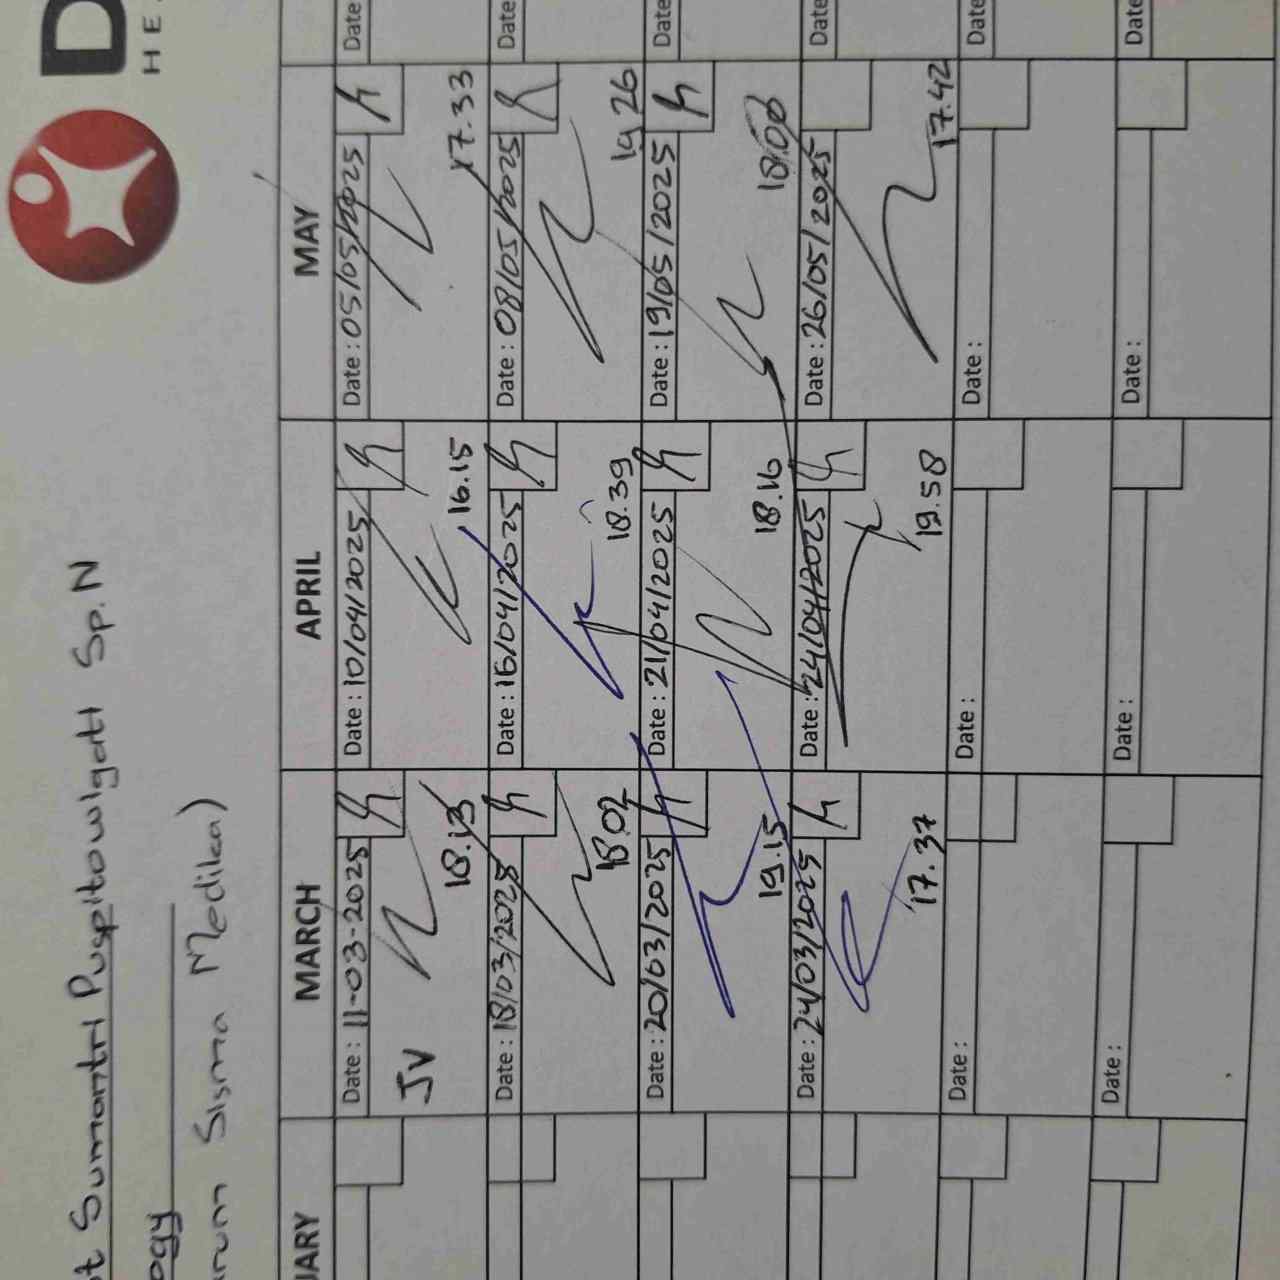 D
HE
t Sumantri Puspitowigati Sp.N
ogy
rum Sisma Medika)
UARY MARCH APRIL MAY
Date : 11-03-2025 Date : 10/04/2025 Date : 05/05/2025 Date
JV 18.13 16.15 17.33
Date : 18/03/2025 Date : 16/04/2025 Date : 08/05/2025 Date
18.02 18.39 19 26
Date : 20/03/2025 Date : 21/04/2025 Date : 19/05/2025 Date
19.15 18.16 18.00
Date : 24/03/2025 Date : 24/04/2025 Date : 26/05/2025 Date
17.37 19.58 17.42
Date : Date : Date : Date
Date : Date : Date : Date